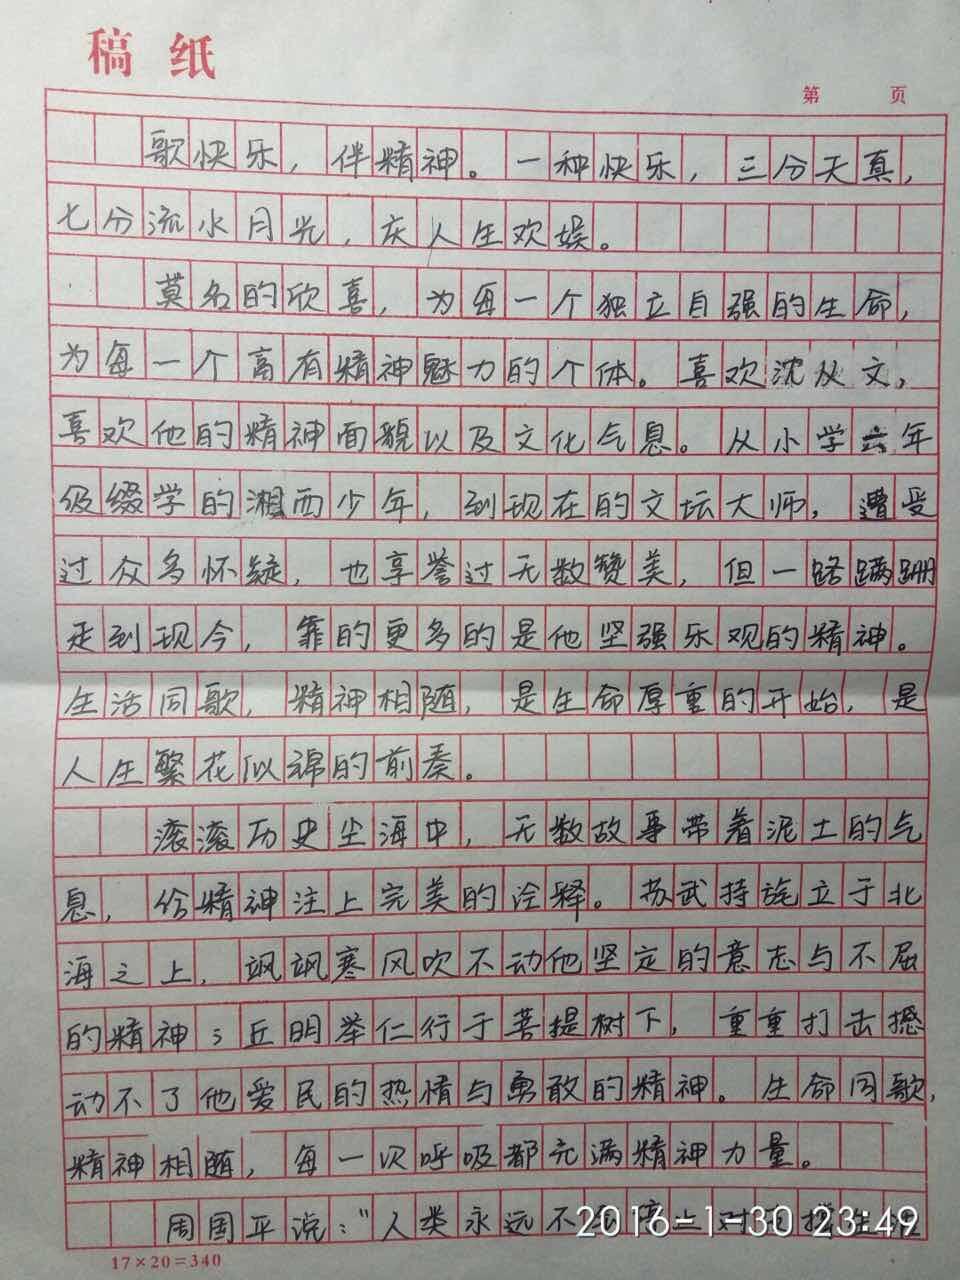 稿纸
第 页
歌快乐，伴精神。一种快乐，三分天真，
七分流水月光，庆人生欢娱。
莫名的欣喜，为每一个独立自强的生命，
为每一个富有精神魅力的个体。喜欢沈从文，
喜欢他的精神面貌以及文化气息。从小学六年
级缀学的湘西少年，到现在的文坛大师，遭受
过众多怀疑，也享誉过无数赞美，但一路蹒跚
走到现今，靠的更多的是他坚强乐观的精神。
生活同歌，精神相随，是生命厚重的开始，是
人生繁花似锦的前奏。
滚滚历史尘海中，无数故事带着泥土的气
息，给精神注上完美的诠释。苏武持旄立于北
海之上，飒飒寒风吹不动他坚定的意志与不屈
的精神；丘明举仁行于菩提树下，重重打击撼
动不了他爱民的热情与勇敢的精神。生命同歌，
精神相随，每一次呼吸都充满精神力量。
周国平说："人类永远不
2016-1-30 23:49
17×20=340